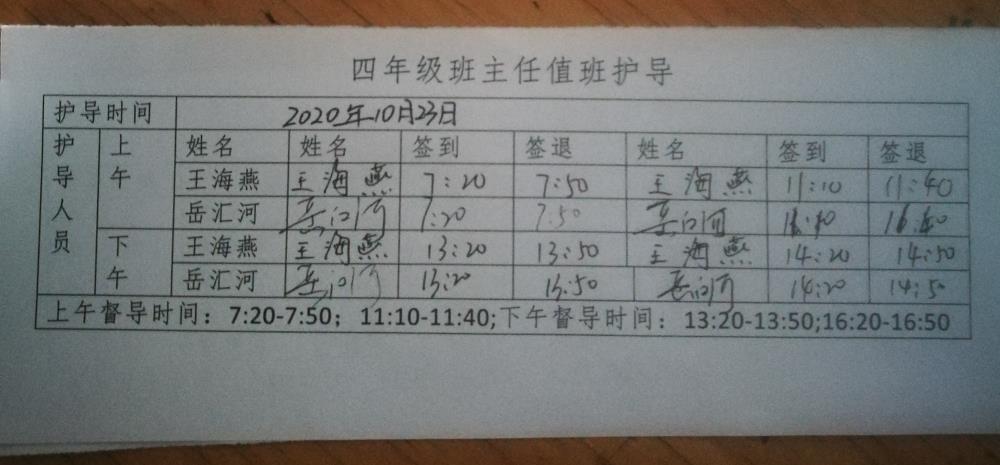 四年级班主任值班护导
护导时间 2020年10月23日
护导人员 上午 姓名 姓名 签到 签退 姓名 签到 签退
王海燕 王海燕 7:20 7:50 王海燕 11:10 11:40
岳汇河 岳汇河 7:20 7:50 岳汇河
下午 王海燕 王海燕 13:20 13:50 王海燕 14:20 14:50
岳汇河 岳汇河 13:20 13:50 岳汇河 14:20 14:50
上午督导时间：7:20-7:50；11:10-11:40;下午督导时间：13:20-13:50;16:20-16:50